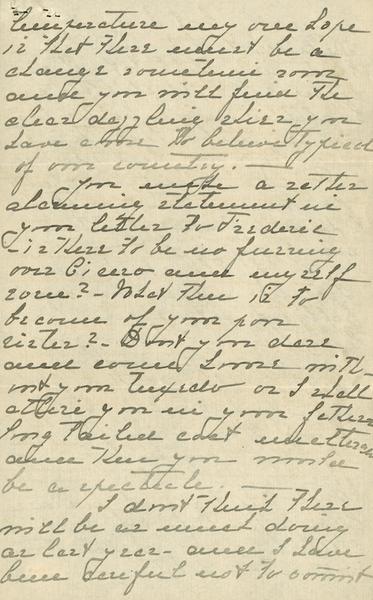 temperature my one hope
is that there must be a
change sometime soon
and you will find the
clear dazzling skies you
have come to believe typical
of our country. —
You made a rather
alarming statement in
your letter to Frederic
- is there to be no
over Cicero and myself
some? - What then is to
become of your poor
sister? - Don't you dare
and come home with-
out your tuxedo or I shall
attire you in your fathers
long tailed coat
and then you would
be a spectacle. —
I dont think there
will be as much doing
as last year - and I have
been careful not to commit